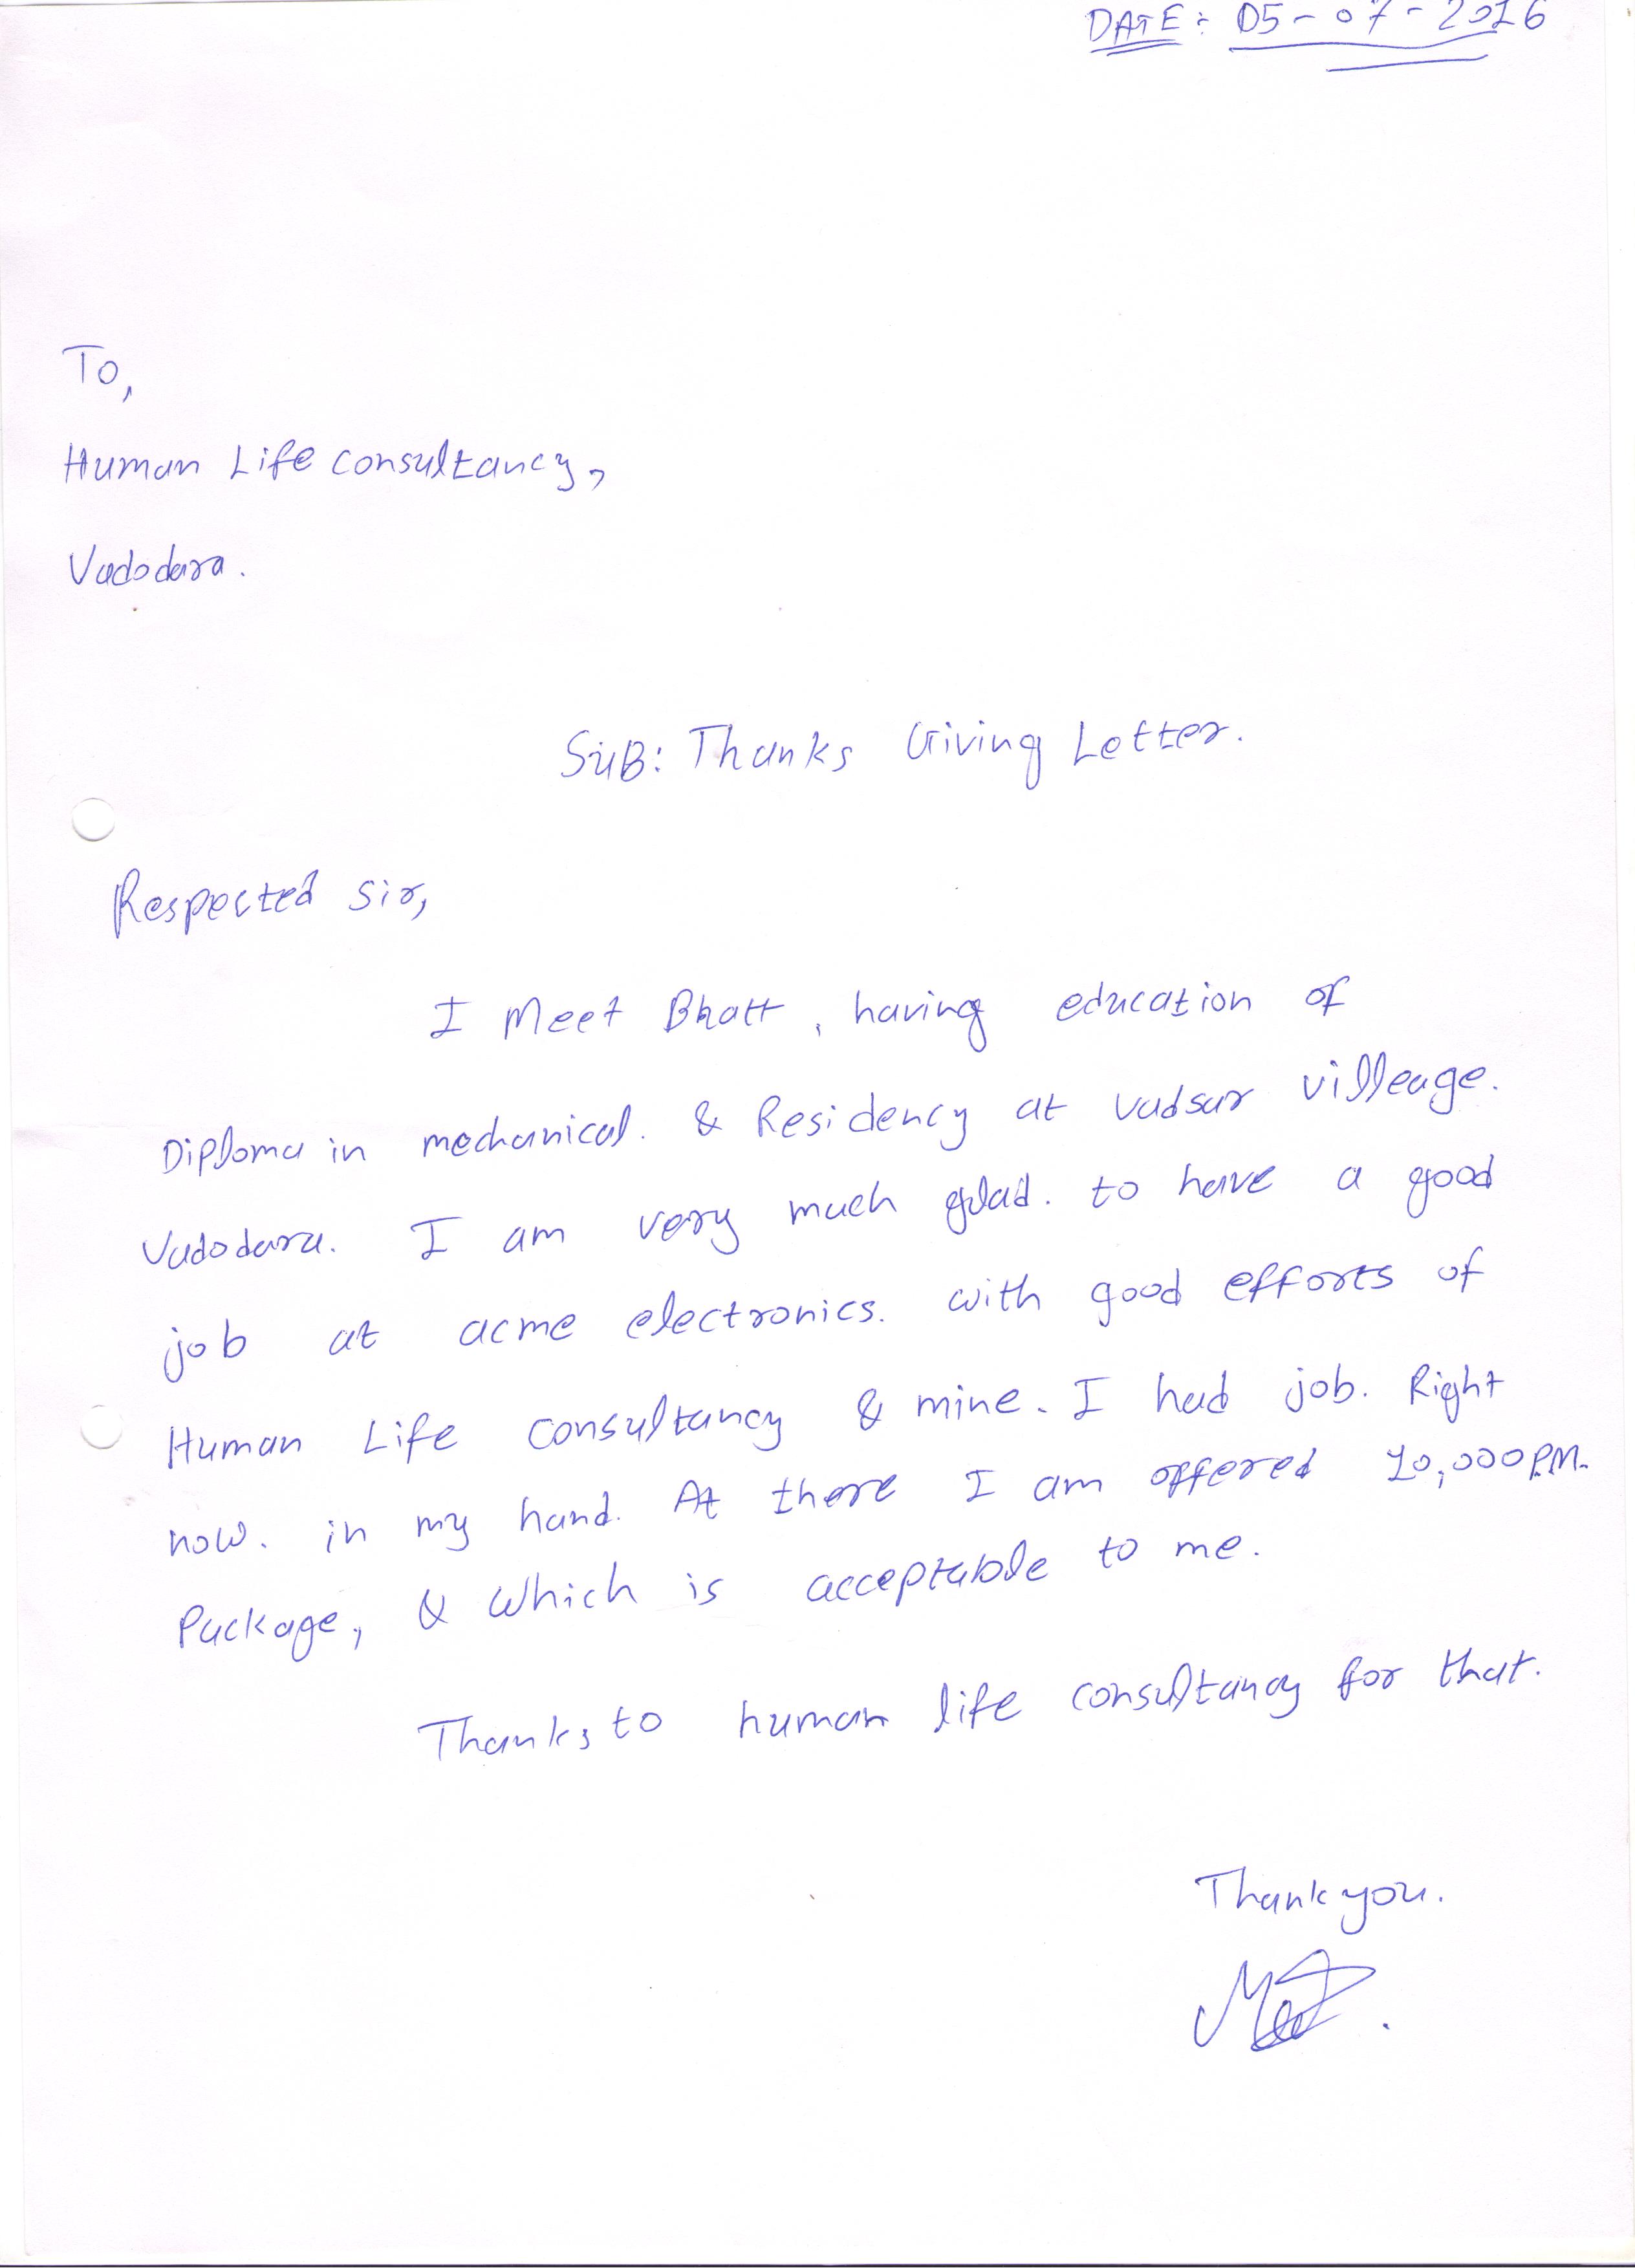 DATE: 05-07-2016
To,
Human Life consultancy,
Vadodara.
SUB: Thanks Giving Letter.
Respected Sir,
I Meet Bhatt, having education of
Diploma in mechanical. & Residency at vadsar villeage.
Vadodara. I am very much glad. to have a good
job at acme electronics. with good efforts of
Human Life consultancy & mine. I had job. Right
now. in my hand. At there I am offered 10,000 P.M.
Package, & which is acceptable to me.
Thanks to human life consultancy for that.
Thank you.
Meet